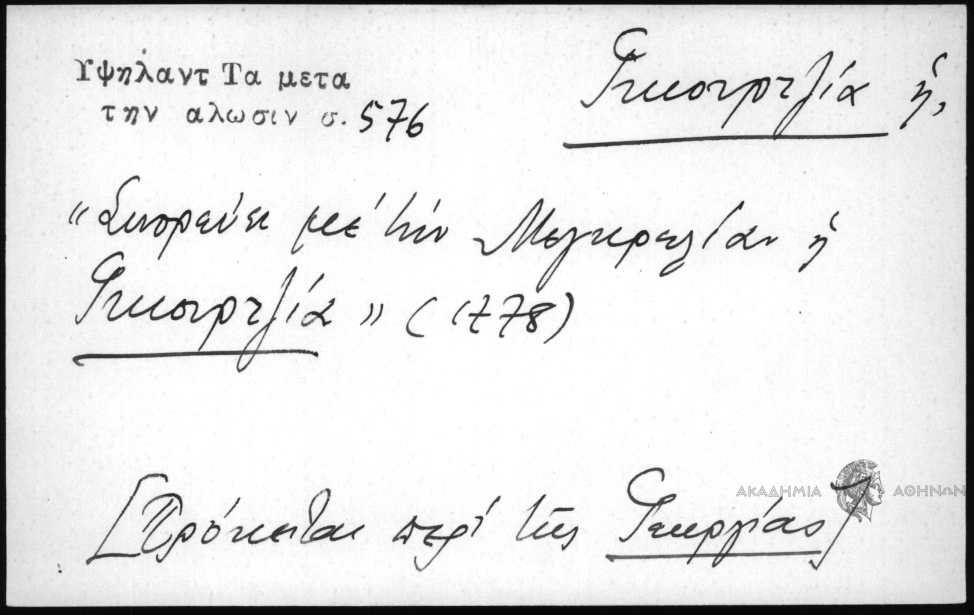 Υψηλαντ Τα μετα
την αλωσιν σ. 576
Γκιουρτζία ἡ,
"Συνορεύει μὲ τὴν Μεγκρελίαν ἡ
Γκιουρτζία" (1778)
[Πρόκειται περὶ τῆς Γεωργίας]
ΑΚΑΔΗΜΙΑ ΑΘΗΝΩΝ